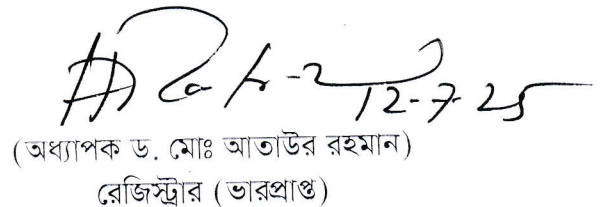 12-7-25
(অধ্যাপক ড. মোঃ আতাউর রহমান)
রেজিস্ট্রার (ভারপ্রাপ্ত)